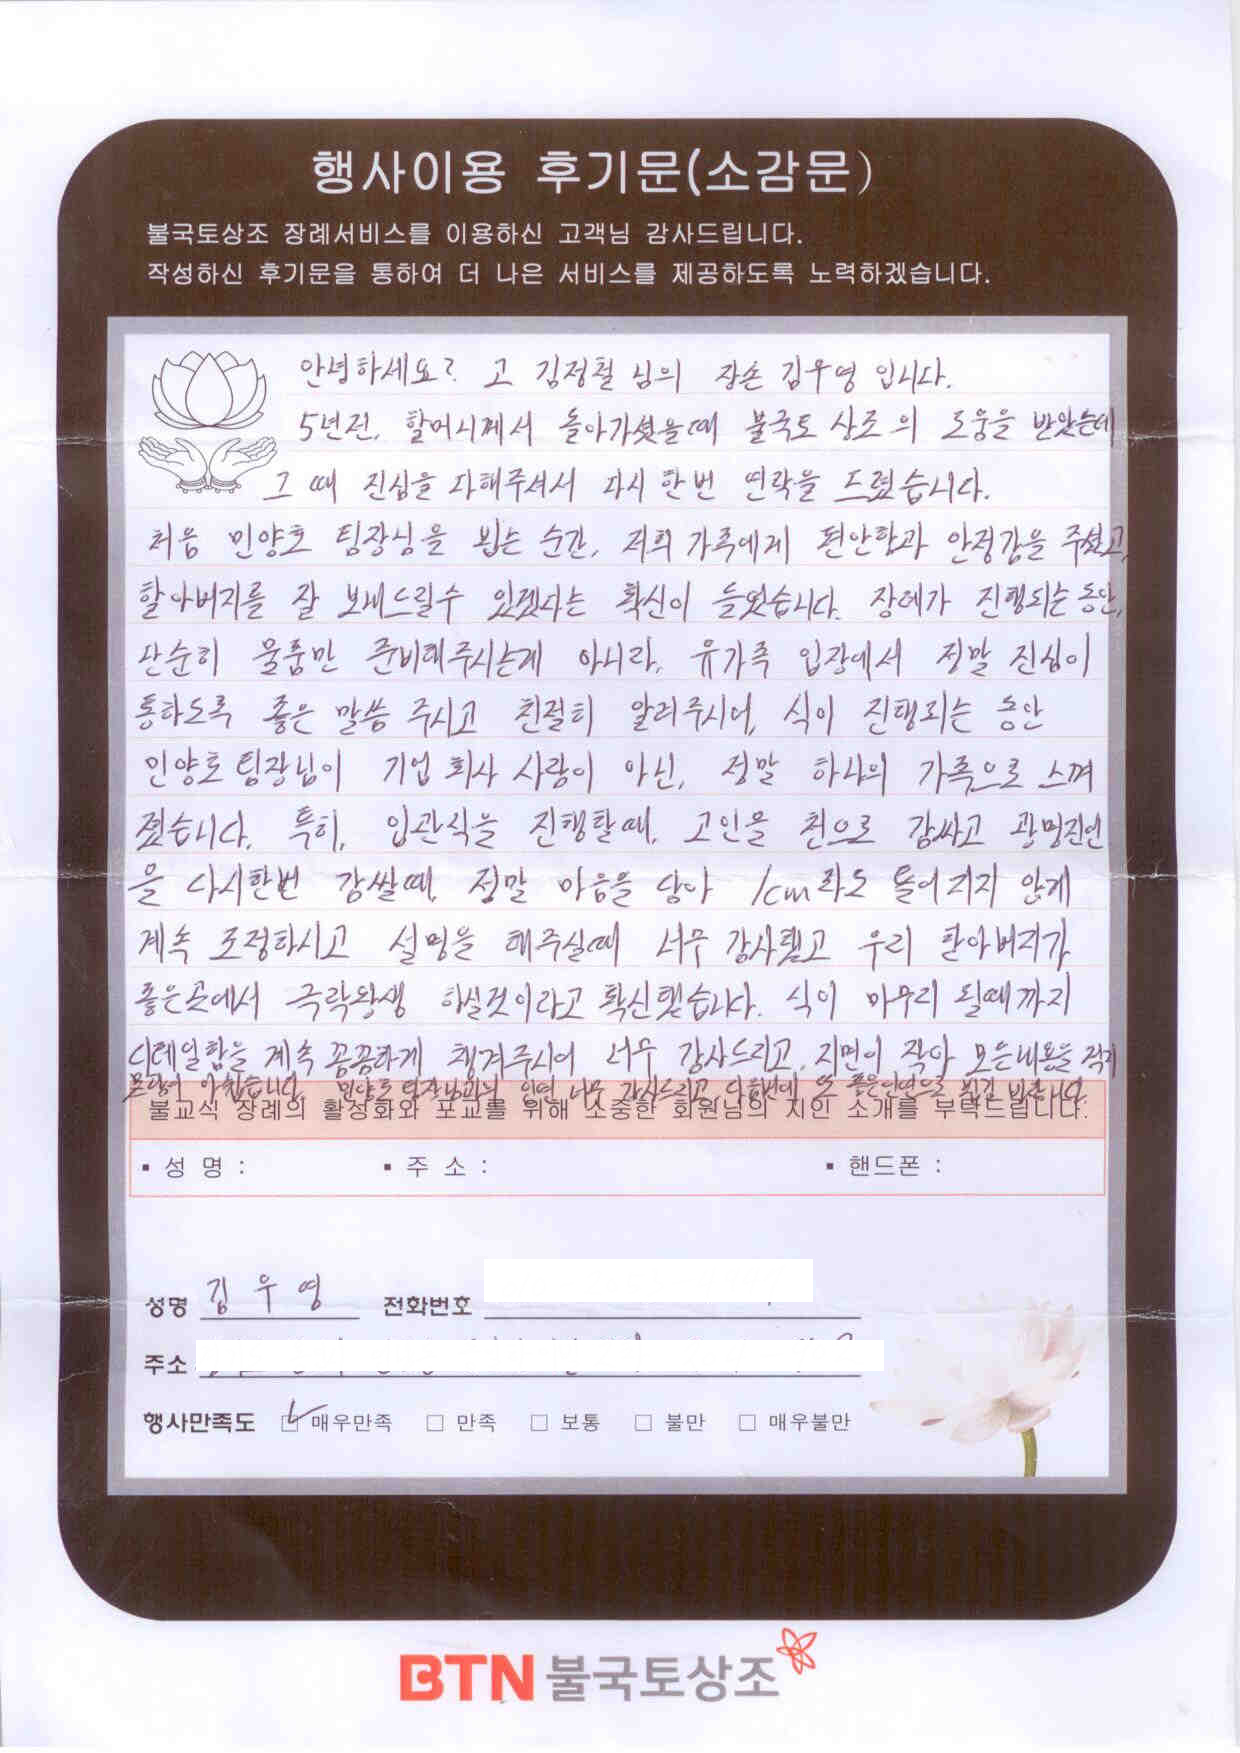 행사이용 후기문(소감문)
불국토상조 장례서비스를 이용하신 고객님 감사드립니다.
작성하신 후기문을 통하여 더 나은 서비스를 제공하도록 노력하겠습니다.
안녕하세요? 고 김정철 님의 장손 김우영 입니다.
5년전, 할머니께서 돌아가셨을때 불국토 상조의 도움을 받았는데
그 때 진심을 다해주셔서 다시 한번 연락을 드렸습니다.
처음 민양호 팀장님을 뵙는 순간, 저희 가족에게 편안함과 안정감을 주셨고,
할아버지를 잘 보내드릴수 있겠다는 확신이 들었습니다. 장례가 진행되는 동안,
단순히 물품만 준비해주시는게 아니라, 유가족 입장에서 정말 진심이
통하도록 좋은 말씀 주시고 친절히 알려주시어, 식이 진행되는 동안
민양호 팀장님이 기업 회사 사람이 아닌, 정말 하나의 가족으로 느껴
졌습니다. 특히, 입관식을 진행할때, 고인을 천으로 감싸고 광명진언
을 다시한번 감쌀때, 정말 마음을 담아 1cm라도 틀어지지 않게
계속 조정하시고 설명을 해주실때 너무 감사했고 우리 할아버지가
좋은곳에서 극락왕생 하실것이라고 확신했습니다. 식이 마무리 될때까지
디테일함을 계속 꼼꼼하게 챙겨주시어 너무 감사드리고, 지면이 작아 모든내용을 적지
못함이 아쉽습니다. 민양호 팀장님과의 인연 너무 감사드리고, 다음번에 또 좋은인연으로 뵙길 바랍니다.
불교식 장례의 활성화와 포교를 위해 소중한 회원님의 지인 소개를 부탁드립니다.
▪ 성 명 : ▪ 주 소 : ▪ 핸드폰 :
성명 김우영 전화번호
주소
행사만족도 □ 매우만족 □ 만족 □ 보통 □ 불만 □ 매우불만
BTN 불국토상조